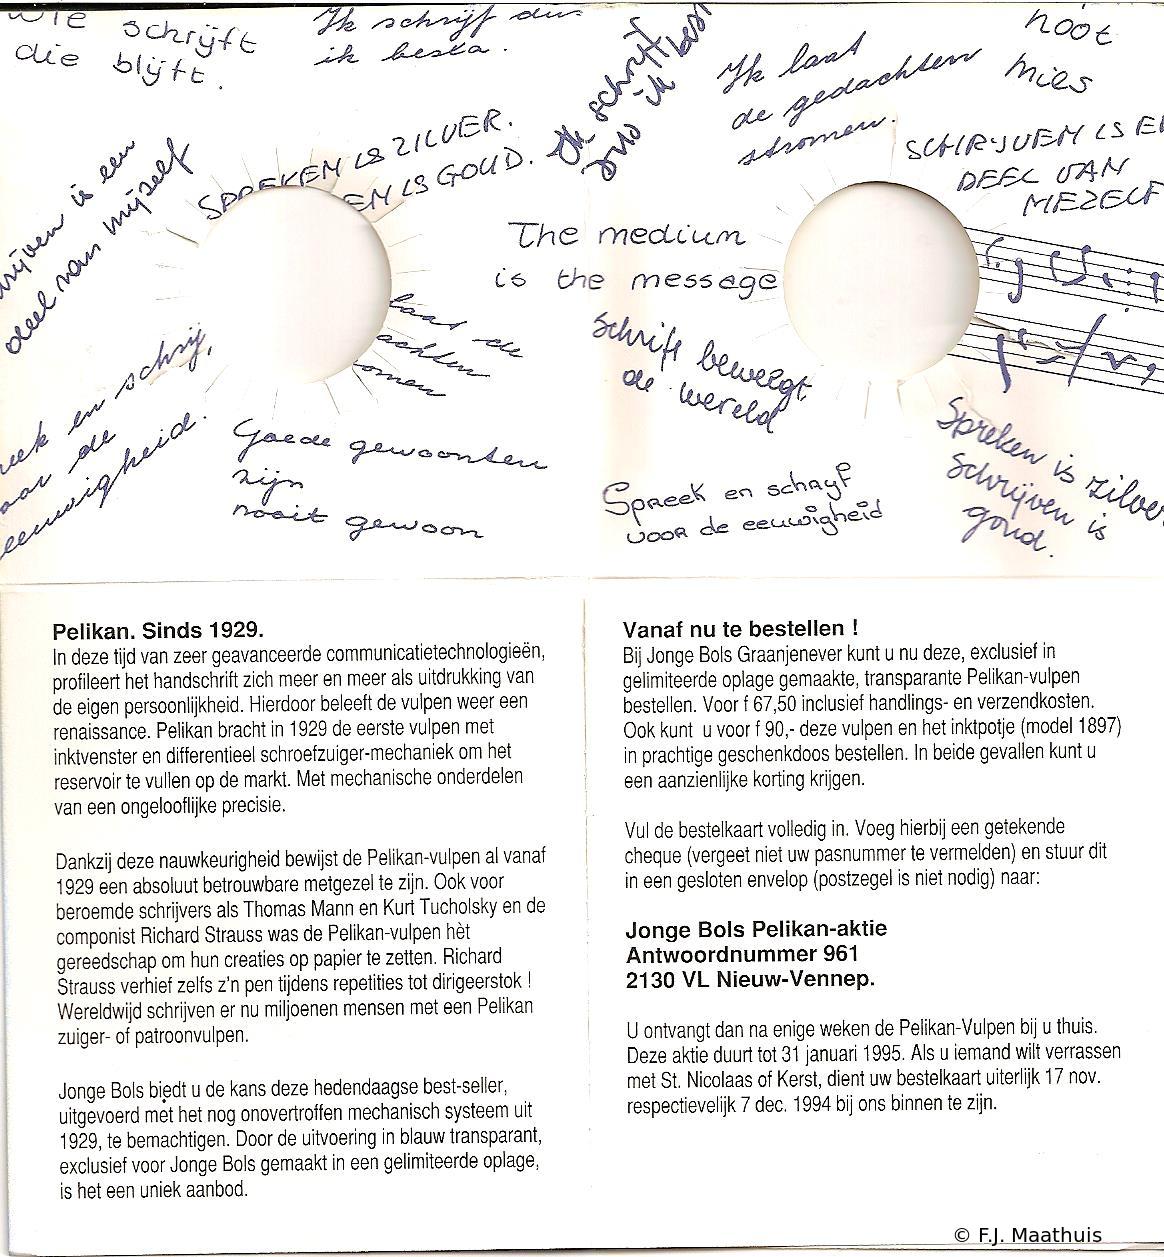 wie schrijft
die blijft.
Ik schrijf dus
ik besta.
Ik schrijf
dus ik best
Ik laat
de gedachten
stromen.
noot
mies
SCHRIJVEN IS
DEEL VAN
MEZELF
SPREKEN IS ZILVER.
EN IS GOUD.
rijven is een
deel van mijzelf
The medium
is the message
laat de
achten
omen
schrift beweegt
de wereld
eek en schrij,
oor de
eeuwigheid.
Goede gewoonten
zijn
nooit gewoon
Spreek en schryf
voor de eeuwigheid
Spreken is zilver
schrijven is
goud.
Pelikan. Sinds 1929.
In deze tijd van zeer geavanceerde communicatietechnologieën,
profileert het handschrift zich meer en meer als uitdrukking van
de eigen persoonlijkheid. Hierdoor beleeft de vulpen weer een
renaissance. Pelikan bracht in 1929 de eerste vulpen met
inktvenster en differentieel schroefzuiger-mechaniek om het
reservoir te vullen op de markt. Met mechanische onderdelen
van een ongelooflijke precisie.
Dankzij deze nauwkeurigheid bewijst de Pelikan-vulpen al vanaf
1929 een absoluut betrouwbare metgezel te zijn. Ook voor
beroemde schrijvers als Thomas Mann en Kurt Tucholsky en de
componist Richard Strauss was de Pelikan-vulpen hèt
gereedschap om hun creaties op papier te zetten. Richard
Strauss verhief zelfs z'n pen tijdens repetities tot dirigeerstok !
Wereldwijd schrijven er nu miljoenen mensen met een Pelikan
zuiger- of patroonvulpen.
Jonge Bols biedt u de kans deze hedendaagse best-seller,
uitgevoerd met het nog onovertroffen mechanisch systeem uit
1929, te bemachtigen. Door de uitvoering in blauw transparant,
exclusief voor Jonge Bols gemaakt in een gelimiteerde oplage,
is het een uniek aanbod.
Vanaf nu te bestellen !
Bij Jonge Bols Graanjenever kunt u nu deze, exclusief in
gelimiteerde oplage gemaakte, transparante Pelikan-vulpen
bestellen. Voor f 67,50 inclusief handlings- en verzendkosten.
Ook kunt u voor f 90,- deze vulpen en het inktpotje (model 1897)
in prachtige geschenkdoos bestellen. In beide gevallen kunt u
een aanzienlijke korting krijgen.
Vul de bestelkaart volledig in. Voeg hierbij een getekende
cheque (vergeet niet uw pasnummer te vermelden) en stuur dit
in een gesloten envelop (postzegel is niet nodig) naar:
Jonge Bols Pelikan-aktie
Antwoordnummer 961
2130 VL Nieuw-Vennep.
U ontvangt dan na enige weken de Pelikan-Vulpen bij u thuis.
Deze aktie duurt tot 31 januari 1995. Als u iemand wilt verrassen
met St. Nicolaas of Kerst, dient uw bestelkaart uiterlijk 17 nov.
respectievelijk 7 dec. 1994 bij ons binnen te zijn.
© F.J. Maathuis